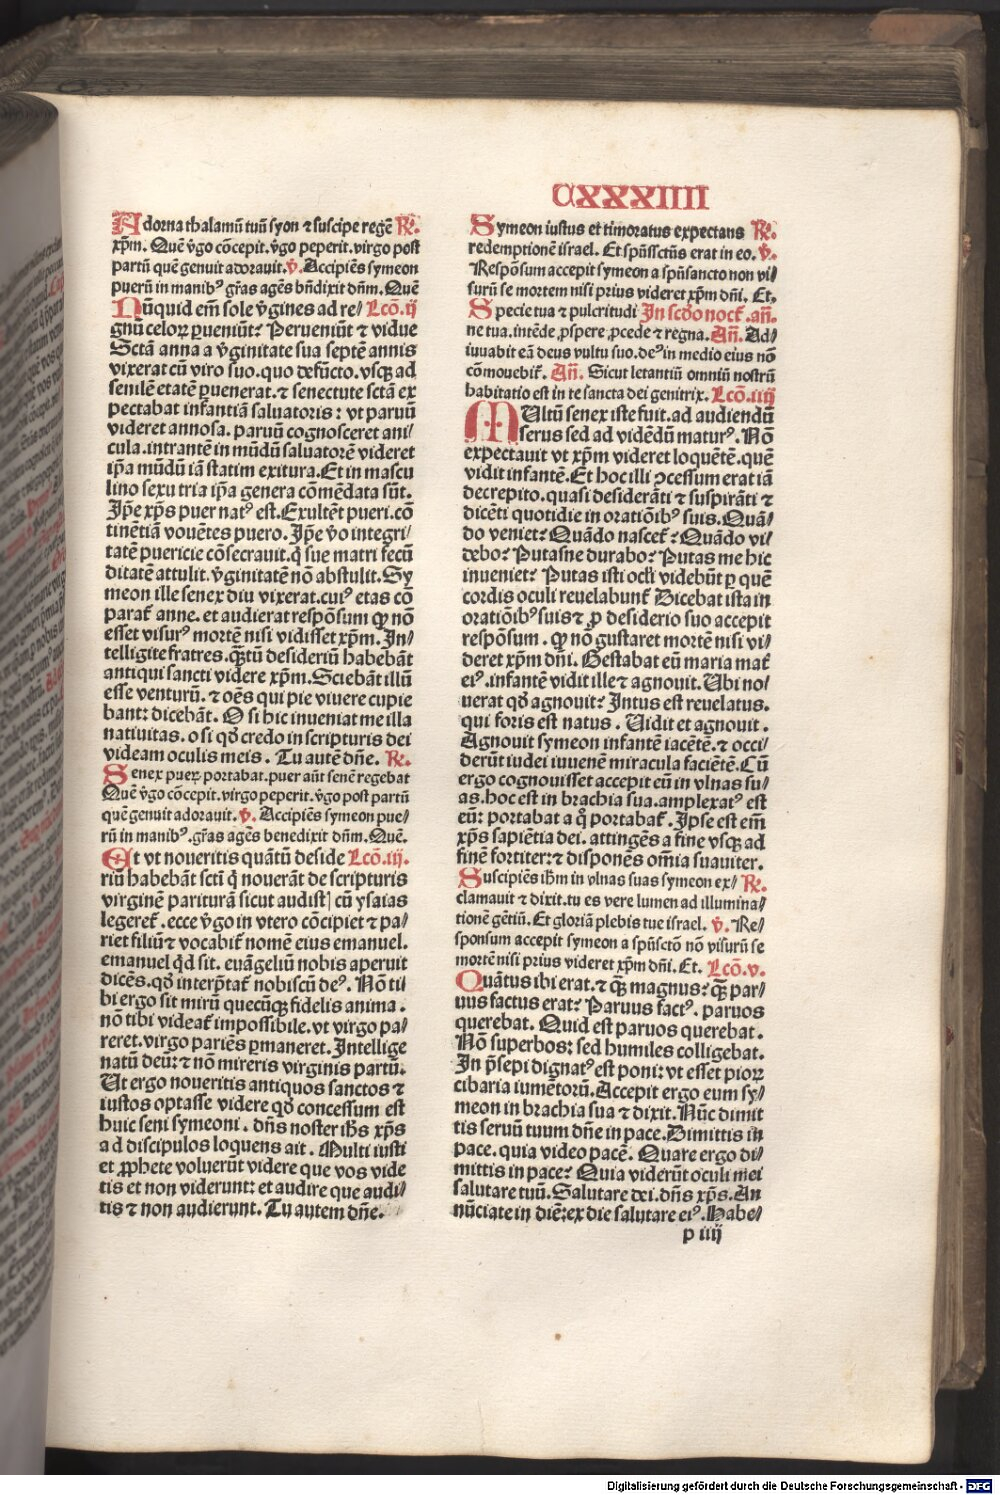 CXXXIIII
Adorna thalamū tuū syon ⁊ suscipe regē R̷.
xp̄m. Quē v̄go cōcepit. v̄go peperit. virgo post
partū quē genuit adorauit. v̄. Accipiēs symeon
puerū in manibꝰ gr̄as agēs bn̄dixit dn̄m. Quē
Nūquid em̄ sole v̄gines ad re/ Lcō. ij
gnū celoꝝ ꝑueniūt? Perueniūt ⁊ vidue
Sctā anna a v̄ginitate sua septē annis
vixerat cū viro suo. quo defūcto. vsqꝫ ad
senilē etatē ꝑuenerat. ⁊ senectute sctā ex
pectabat infantiā saluatoris: vt paruū
videret annosa. paruū cognosceret ani/
cula. intrantē in mūdū saluatorē videret
ip̄a mūdū iā statim exitura. Et in mascu
lino sexu tria ip̄a genera cōmēdata sūt.
Ip̄e xp̄s puer natꝰ est. Exultēt pueri. cō
tinētiā vouētes puero. Ip̄e v̄o integri/
tatē puericie cōsecrauit. q̄ sue matri fecū
ditatē attulit. v̄ginitatē nō abstulit. Sy
meon ille senex diu vixerat. cuiꝰ etas cō
parat̄ anne. et audierat respōsum ꝙ nō
esset visurꝰ mortē nisi vidisset xp̄m. In/
telligite fratres. q̄tū desideriū habebāt
antiqui sancti videre xp̄m. Sciebāt illū
esse venturū. ⁊ oēs qui pie viuere cupie
bant: dicebāt. O si hic inueniat me illa
natiuitas. o si qḋ credo in scripturis dei
videam oculis meis. Tu autē dn̄e. R̷.
Senex pueꝝ portabat. puer aūt senē regebat
Quē v̄go cōcepit. virgo peperit. v̄go post partū
quē genuit adorauit. v̄. Accipiēs symeon pue/
rū in manibꝰ. gr̄as agēs benedixit dn̄m. Quē.
Et vt noueritis quātū deside Lcō. iij.
riū habebāt sctū q̄ nouerāt de scripturis
virginē pariturā sicut audist] cū ysaias
legeret̄. ecce v̄go in vtero cōcipiet ⁊ pa/
riet filiū ⁊ vocabit̄ nomē eius emanuel.
emanuel qḋ sit. euāgeliū nobis aperuit
dicēs. qḋ interp̄tat̄ nobiscū deꝰ. Nō ti/
bi ergo sit mirū quecūqꝫ fidelis anima.
nō tibi videat̄ impossibile. vt virgo pa/
reret. virgo pariēs ꝑmaneret. Intellige
natū deū: ⁊ nō mireris virginis partū.
Ut ergo noueritis antiquos sanctos ⁊
iustos optasse videre qḋ concessum est
huic seni symeoni. dn̄s noster ih̄s xp̄s
ad discipulos loquens ait. Multi iusti
et ꝓphete voluerūt videre que vos vide
tis et non viderunt: et audire que audi/
tis ⁊ non audierunt. Tu autem dn̄e.
Symeon iustus et timoratus expectans R̷.
redemptionē israel. Et spūssctūs erat in eo. v̄.
Respōsum accepit symeon a spūsancto non vi/
surū se mortem nisi prius videret xp̄m dn̄i. Et.
Specie tua ⁊ pulcritudi In scḋo noct̄. an̄.
ne tua. intēde, ꝓspere, ꝓcede ⁊ regna. An̄. Ad/
iuuabit eā deus vultu suo. deꝰ in medio eius nō
cōmouebit̄. An̄. Sicut letantiū omniū nostrū
habitatio est in te sancta dei genitrix. Lcō. iiij
Multū senex iste fuit. ad audiendū
serus sed ad vidēdū maturꝰ. Nō
expectauit vt xp̄m videret loquētē. quē
vidit infantē. Et hoc illi ꝓcessum erat iā
decrepito. quasi desiderāti ⁊ suspirāti ⁊
dicēti quotidie in oratiōibꝰ suis. Quā/
do veniet? Quādo nascet̄? Quādo vi/
debo? Putasne durabo? Putas me hic
inueniet? Putas isti ocl̄i videbūt ꝑ quē
cordis oculi reuelabunt̄ Dicebat ista in
oratiōibꝰ suis ⁊ ꝓ desiderio suo accepit
respōsum. ꝙ nō gustaret mortē nisi vi/
deret xp̄m dn̄i. Gestabat eū maria mat̄
eiꝰ. infantē vidit ille ⁊ agnouit. Ubi no/
uerat qḋ agnouit? Intus est reuelatus.
qui foris est natus. Uidit et agnouit.
Agnouit symeon infantē iacētē. ⁊ occi/
derūt iudei iuuenē miracula faciētē. Cū
ergo cognouisset accepit eū in vlnas su/
as. hoc est in brachia sua. amplexatꝰ est
eū: portabat a q̊ portabat̄. Ipse est em̄
xp̄s sapiētia dei. attingēs a fine vsqꝫ ad
finē fortiter: ⁊ disponēs om̄ia suauiter.
Suscipiēs ih̄m in vlnas suas symeon ex/ R̷.
clamauit ⁊ dixit. tu es vere lumen ad illumina/
tionē gētiū. Et gloriā plebis tue israel. v̄. Re/
sponsum accepit symeon a spūsctō nō visurū se
mortē nisi prius videret xp̄m dn̄i. Et. Lcō. v.
Quātus ibi erat. ⁊ q̄ magnus? q̄ par/
uus factus erat? Paruus factꝰ. paruos
querebat. Quid est paruos querebat.
Nō superbos: sed humiles colligebat.
In p̄sepi dignatꝰ est poni: vt esset pioꝝ
cibaria iumētorū. Accepit ergo eum sy/
meon in brachia sua ⁊ dixit. Nūc dimit
tis seruū tuum dn̄e in pace. Dimittis in
pace. quia video pacē. Quare ergo di/
mittis in pace? Quia viderūt oculi mei
salutare tuū. Salutare dei. dn̄s xp̄s. An
nūciate in diē: ex die salutare eiꝰ. Habe/
p iiij
Digitalisierung gefördert durch die Deutsche Forschungsgemeinschaft - DFG